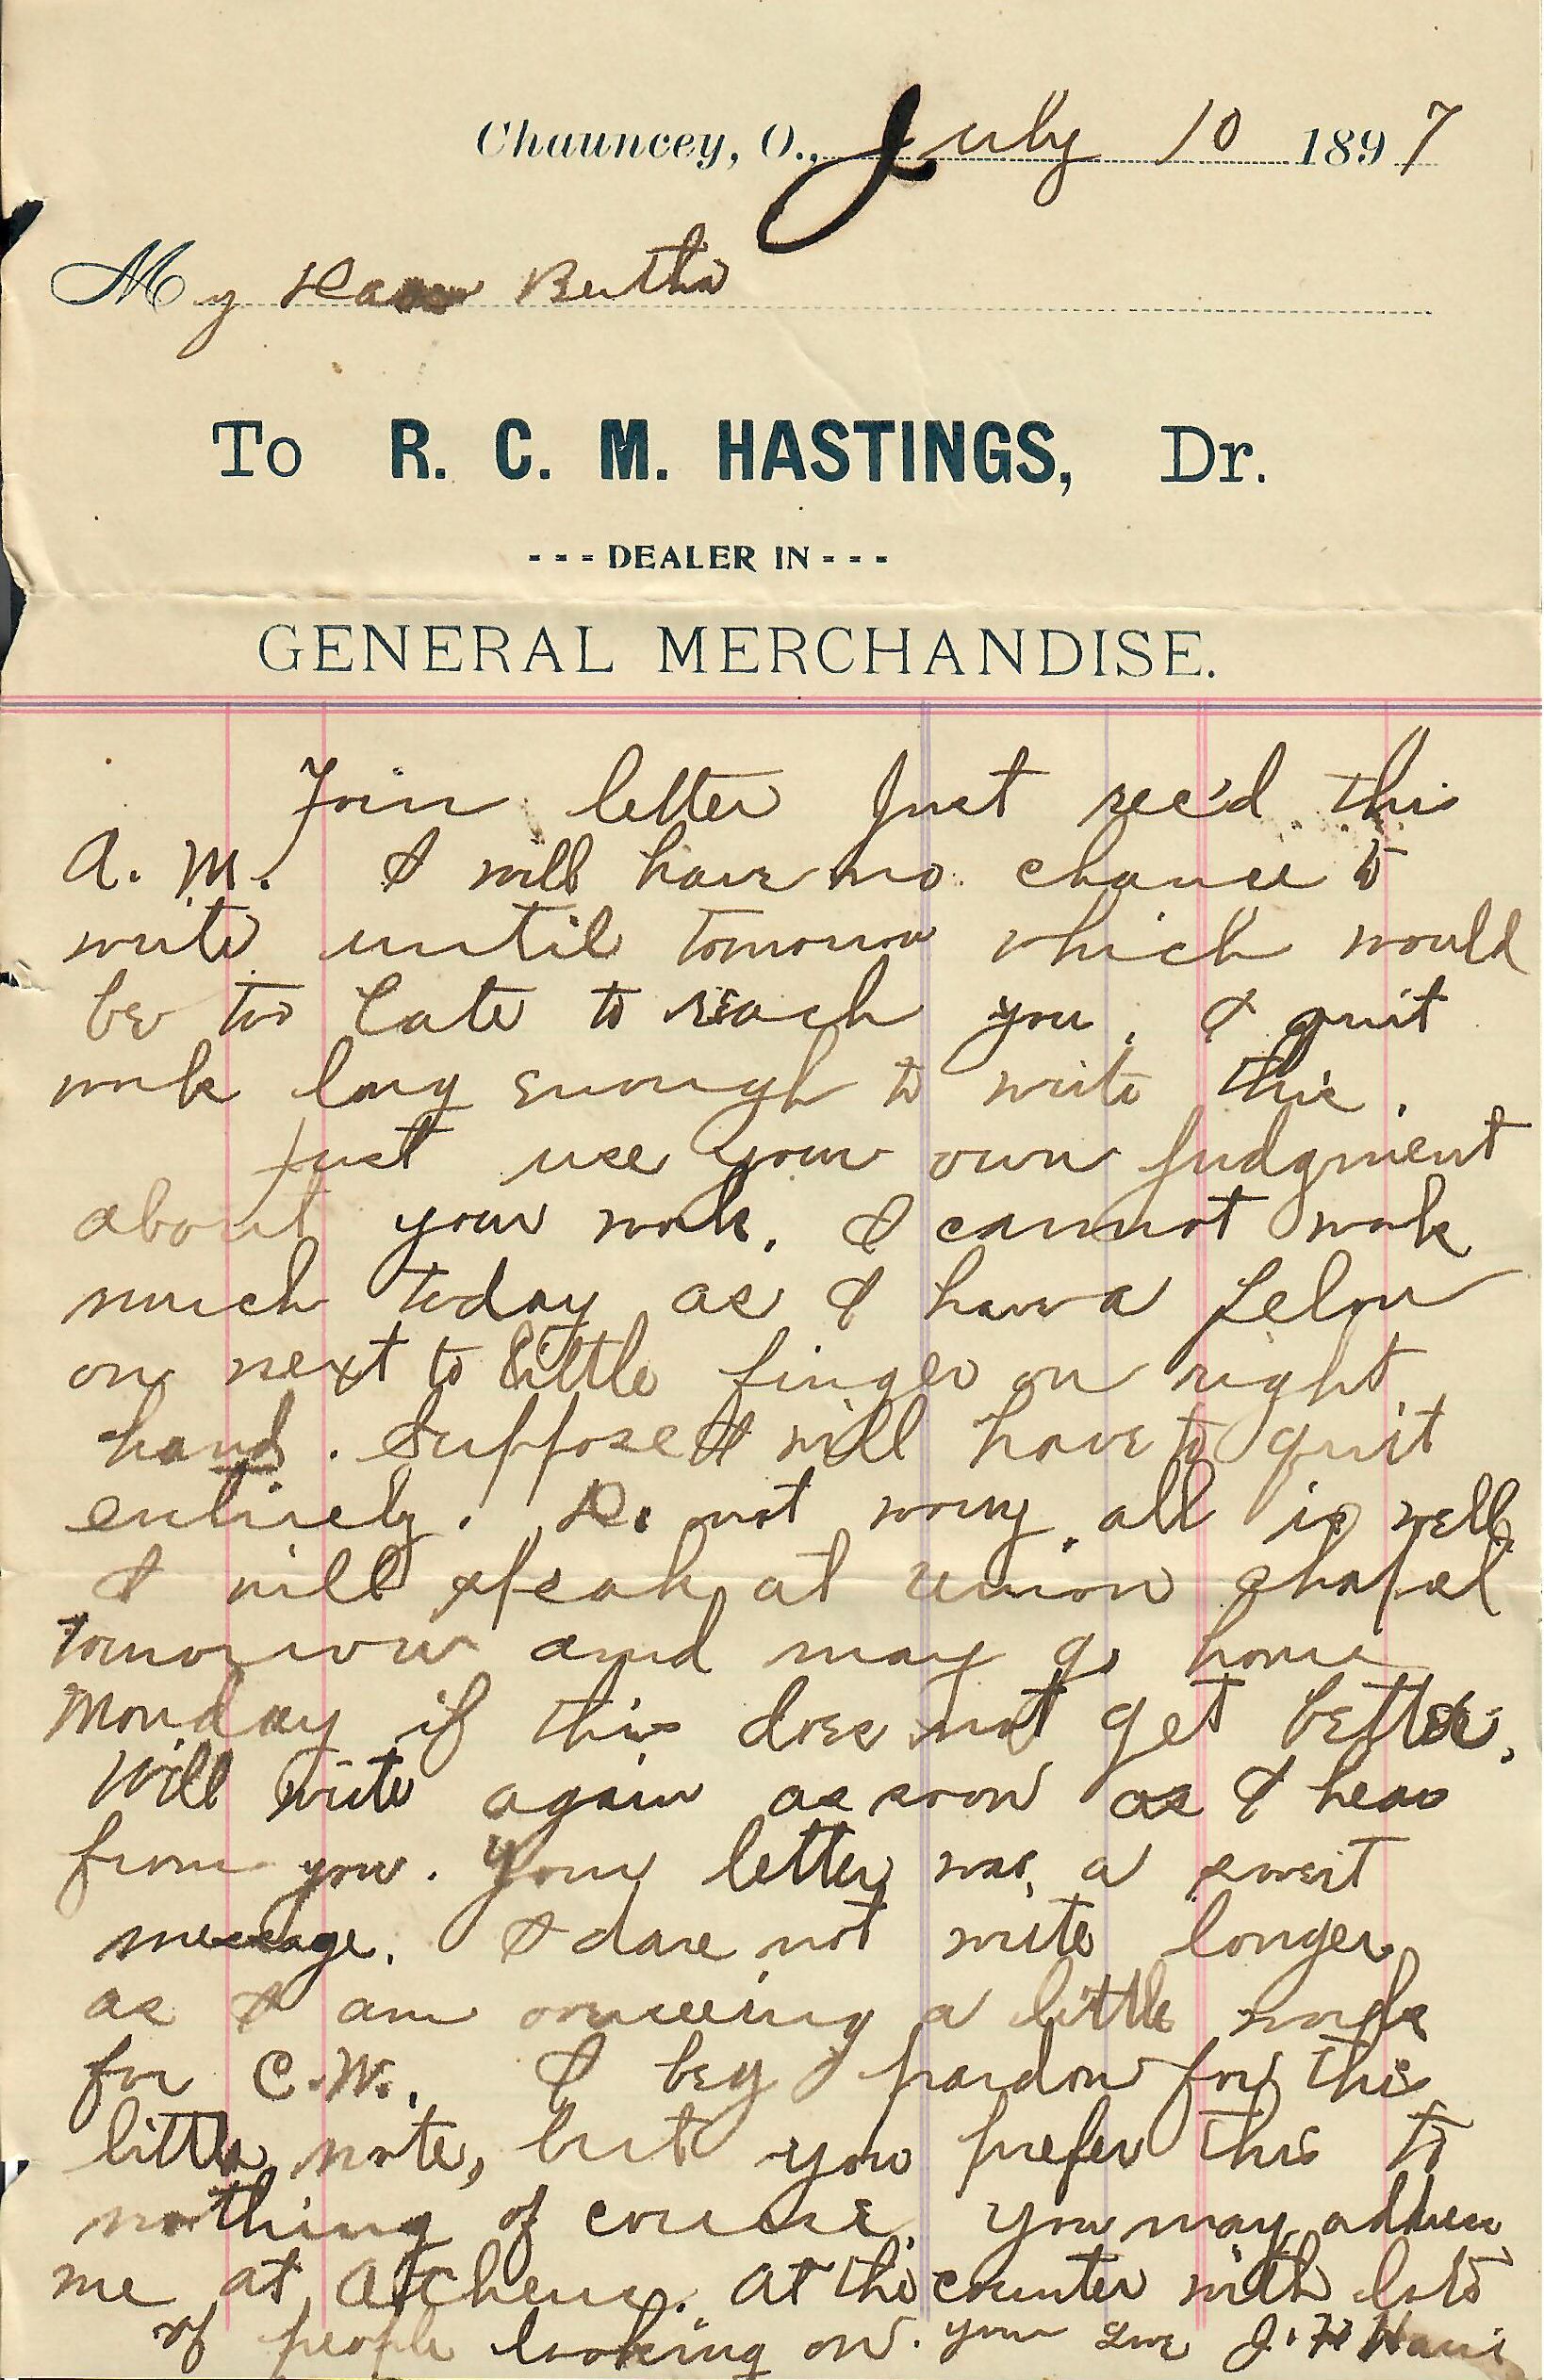 Chauncey, O., July 10 1897
My Dear Bertha
To R. C. M. HASTINGS, Dr.
- - - DEALER IN - - -
GENERAL MERCHANDISE.
Your letter just rec'd this
A. M. I will have no chance to
write until tomorrow which would
be too late to reach you. I quit
work long enough to write this.
Just use your own judgment
about your work. I cannot work
much today as I have a felon
on next to little finger on right
hand. Suppose I will have to quit
entirely. Do not worry, all is well
I will speak at union chapel
tomorrow and may go home
Monday if this does not get better.
Will write again as soon as I hear
from you. Your letter was a sweet
message. I dare not write longer
as I am overseeing a little work
for C. W. I beg pardon for this
little note, but you prefer this to
nothing of course. You may address
me at Athens. At the counter with lots
of people looking on. your J. H.